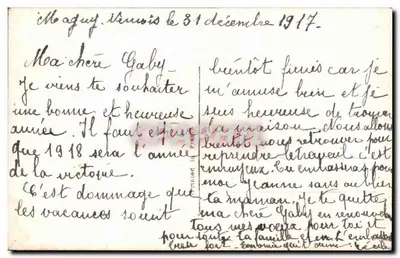 Magny-Vernois le 31 décembre 1917.
Ma chère Gaby
Je viens te souhaiter
une bonne et heureuse
année. Il faut espérer
que 1918 sera l'année
de la victoire.
C'est dommage que
les vacances soient
bientôt finies car je
m'amuse bien et je
suis heureuse de trouver
la maison. Nous allons
bientôt nous retrouver pour
reprendre le travail c'est
ennuyeux. Tu embrasseras pour
moi Jeanne sans oublier
ta maman. Je te quitte
ma chère Gaby en renouvelant
tous mes voeux pour toi et
pour toute la famille et en t'embrassant
bien fort. qui t'aime Cécile